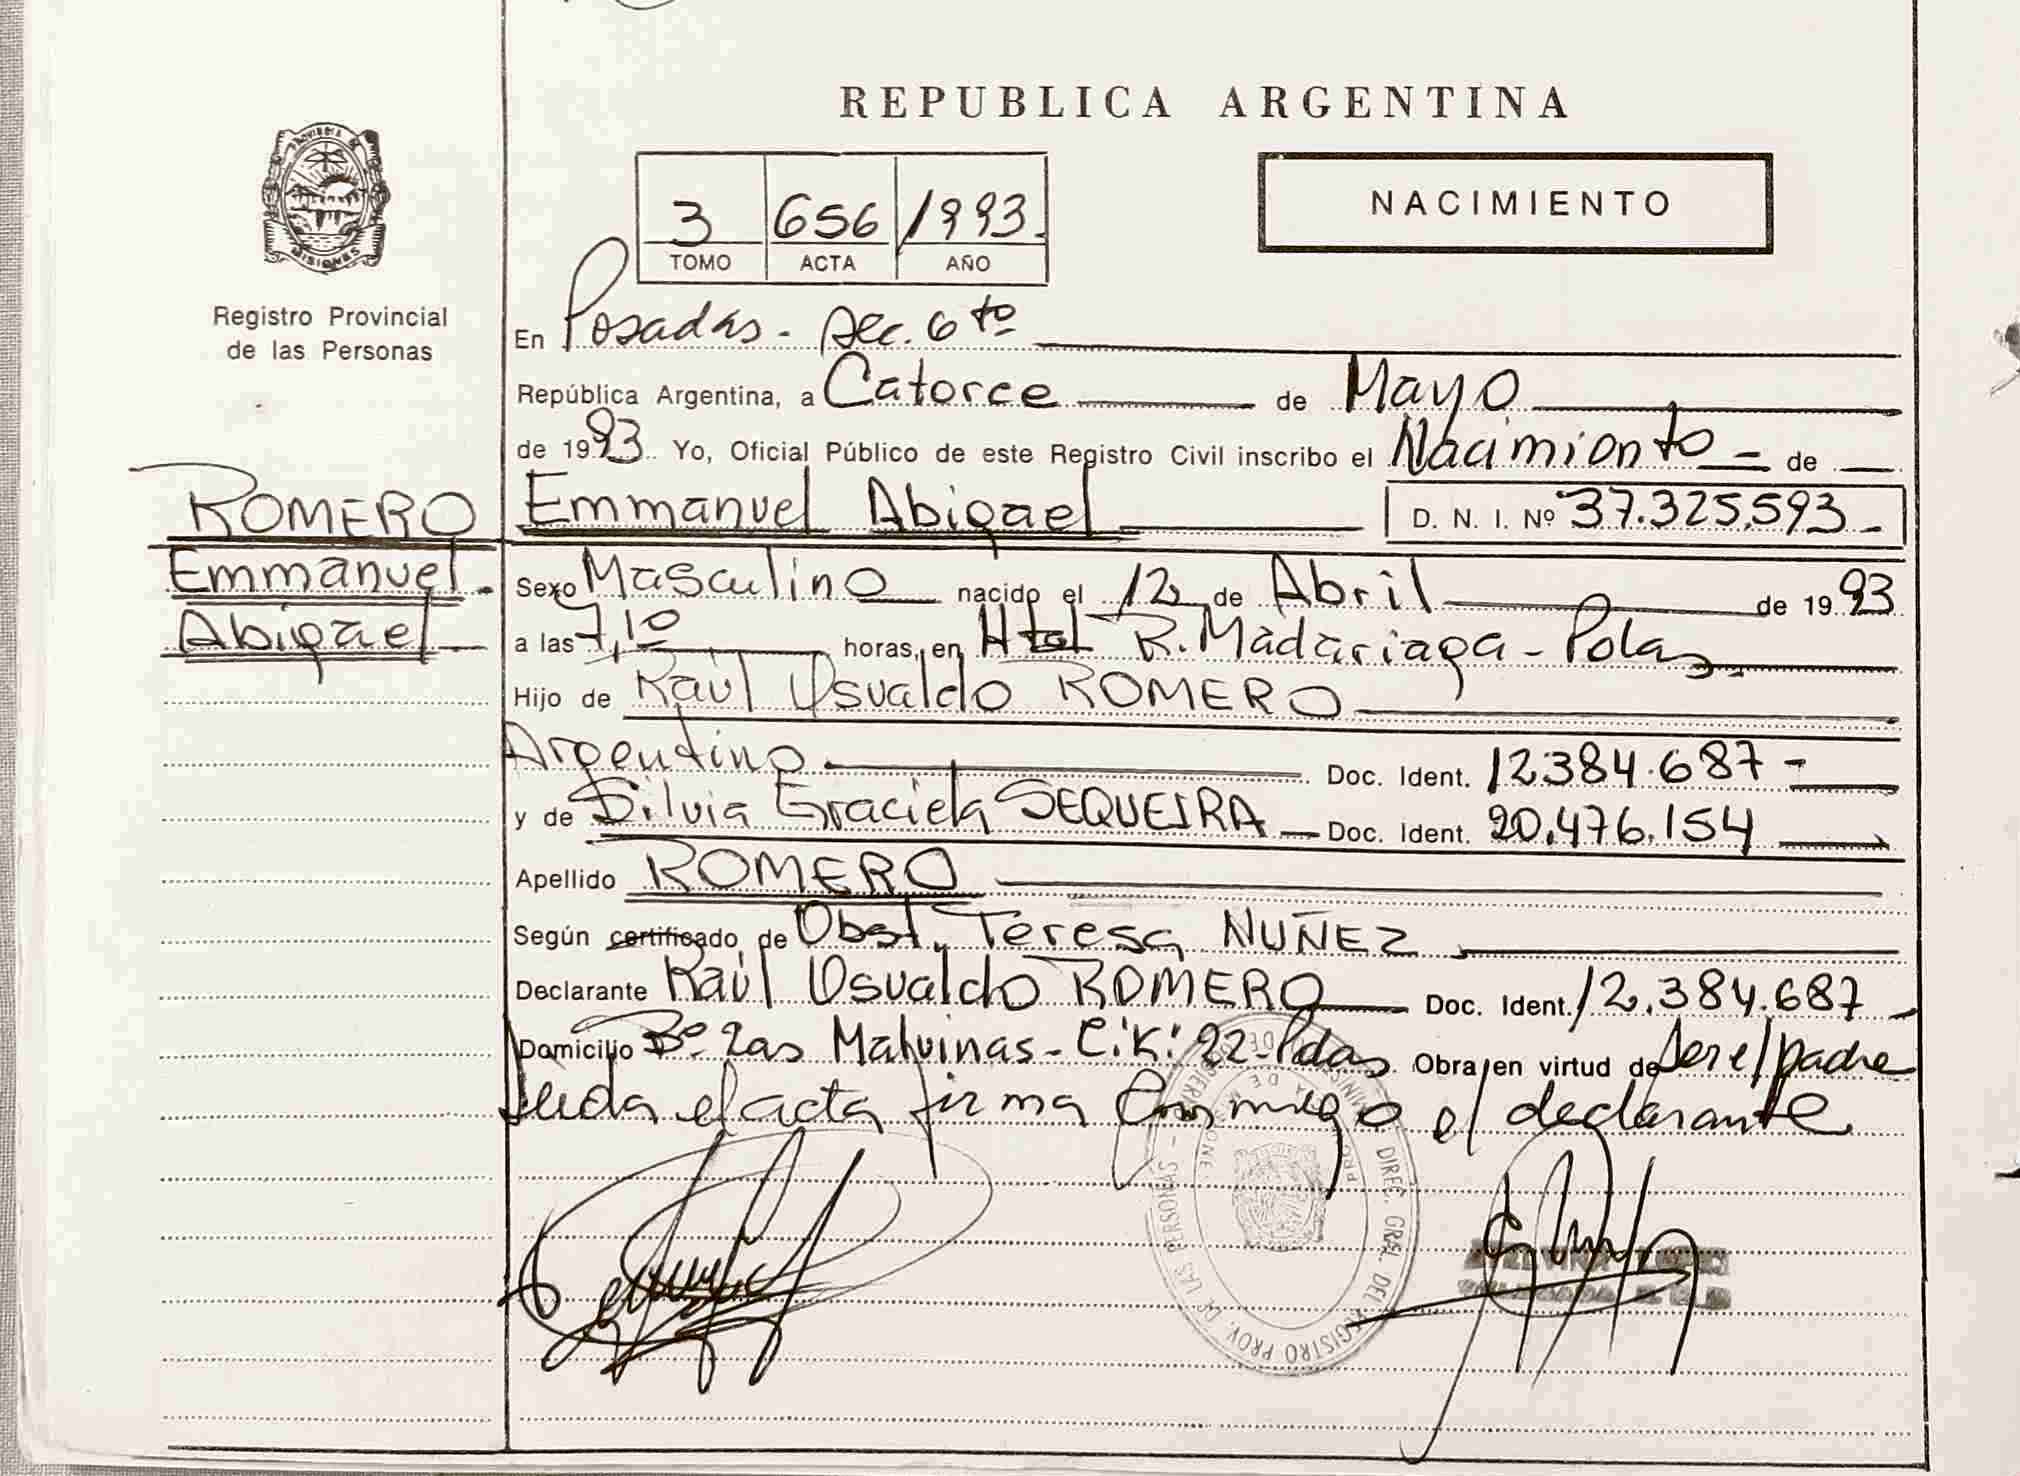 REPUBLICA ARGENTINA
PROVINCIA DE
MISIONES
Registro Provincial
de las Personas
3 656 1993.
TOMO ACTA AÑO
NACIMIENTO
En Posadas - Sec. 6to
República Argentina, a Catorce de Mayo
de 1993 Yo, Oficial Público de este Registro Civil inscribo el Nacimiento de
ROMERO
Emmanuel
Abigael
Emmanuel Abigael D. N. I. Nº 37.325.593
Sexo Masculino nacido el 12 de Abril de 1993
a las 7,10 horas, en Htal R. Madariaga - Pdas
Hijo de Raúl Osvaldo ROMERO
Argentino Doc. Ident. 12384.687 -
y de Silvia Graciela SEQUEIRA Doc. Ident. 20.476.154
Apellido ROMERO
Según certificado de Obst. Teresa NUÑEZ
Declarante Raúl Osvaldo ROMERO Doc. Ident. 12.384.687
Domicilio Bº Las Malvinas - 22 - Pdas Obra en virtud de Ser el padre
Leída el acta firma Conmigo el declarante
DIREC. GRAL. DEL REGISTRO PROV. DE LAS PERSONAS